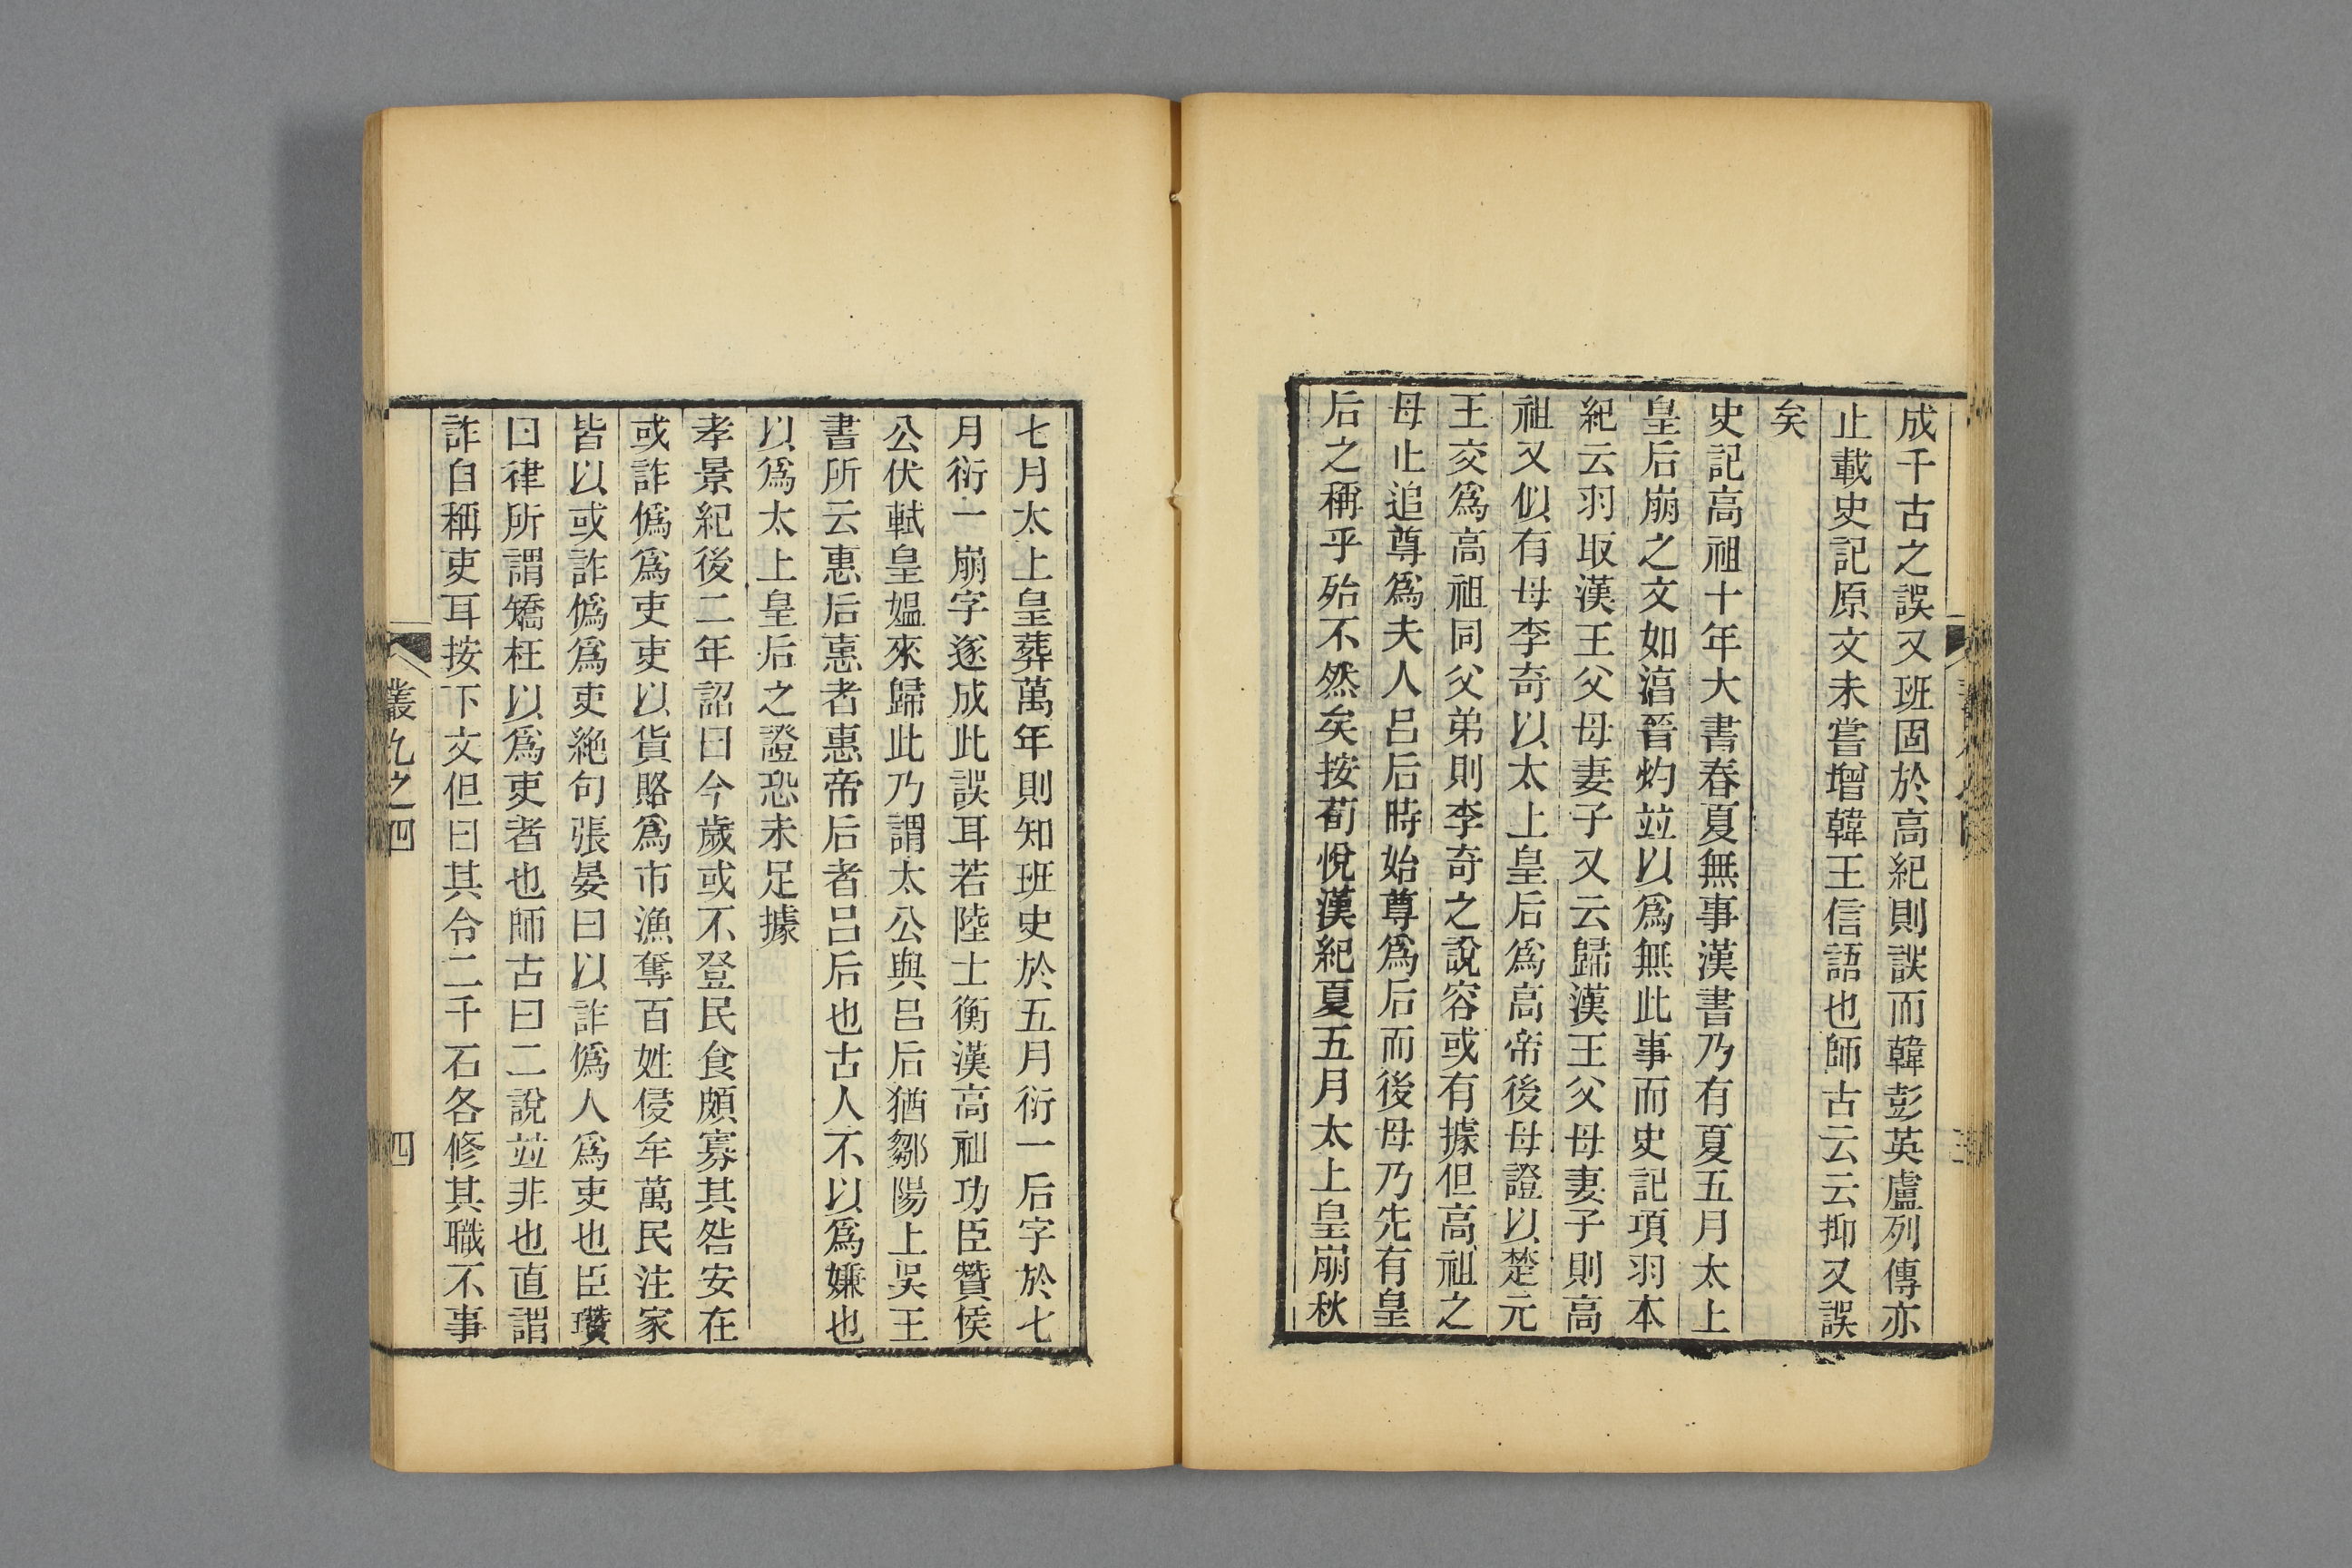 成千古之誤又班固於高紀則誤而韓彭英盧列傳亦
止載史記原文未嘗增韓王信語也師古云云抑又誤
矣
史記高祖十年大書春夏無事漢書乃有夏五月太上
皇后崩之文如湻晉灼竝以爲無此事而史記項羽本
紀云羽取漢王父母妻子又云歸漢王父母妻子則高
祖又似有母李奇以太上皇后爲高帝後母證以楚元
王交爲高祖同父弟則李奇之說容或有據但高祖之
母止追尊爲夫人呂后時始尊爲后而後母乃先有皇
后之稱乎殆不然矣按荀悅漢紀夏五月太上皇崩秋
七月太上皇葬萬年則知班史於五月衍一后字於七
月衍一崩字遂成此誤耳若陸士衡漢高祖功臣贊侯
公伏軾皇媼來歸此乃謂太公與呂后猶鄒陽上吳王
書所云惠后惠者惠帝后者呂后也古人不以爲嫌也
以爲太上皇后之證恐未足據
孝景紀後二年詔曰今歲或不登民食頗寡其咎安在
或詐僞爲吏吏以貨賂爲市漁奪百姓侵牟萬民注家
皆以或詐僞爲吏絕句張晏曰以詐僞人爲吏也臣瓚
曰律所謂矯枉以爲吏者也師古曰二說竝非也直謂
詐自稱吏耳按下文但曰其令二千石各修其職不事
叢九之四
四